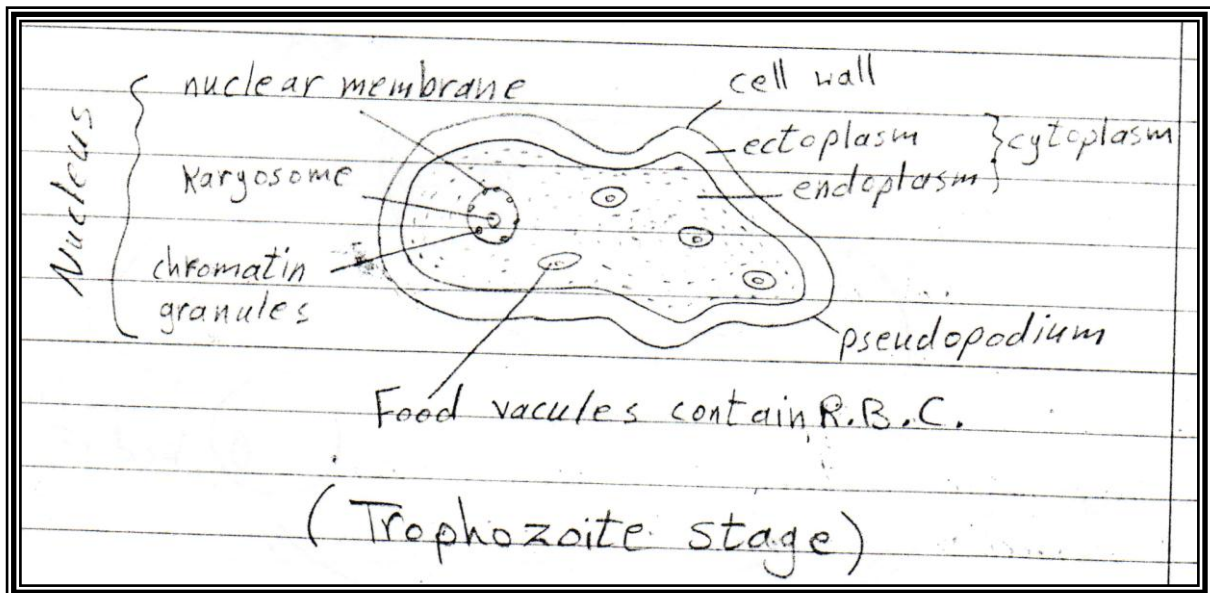 Nucleus
nuclear membrane
Karyosome
chromatin
granules
cell wall
ectoplasm
endoplasm
cytoplasm
pseudopodium
Food vacules contain R.B.C.
(Trophozoite stage)